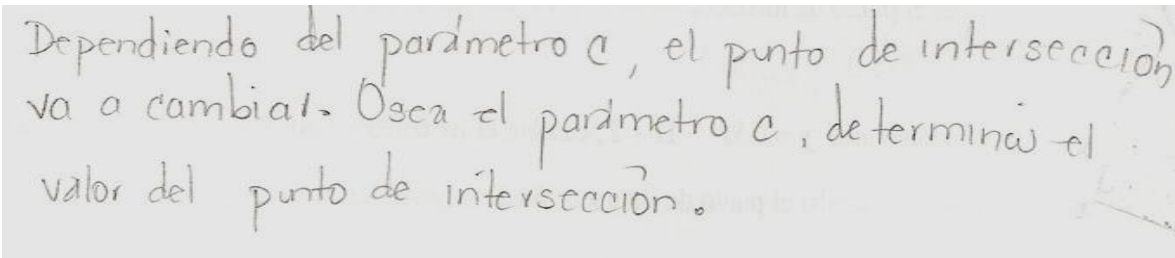 Dependiendo del parámetro c, el punto de intersección
va a cambiar. Osea el parámetro c, determina el
valor del punto de intersección.